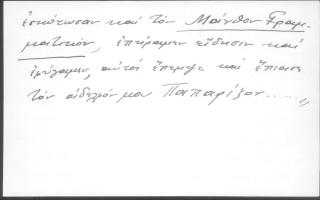 ἐσκότωσαν καὶ τὸν Μάνθον Γραμ-
ματικόν, ἐπήραμεν εἴδησιν καὶ
ἐφύγαμεν, αὐτοὶ ἔπεμψε καὶ ἔπιασε
τὸν ἀδελφόν μου Παπαρίζον......„